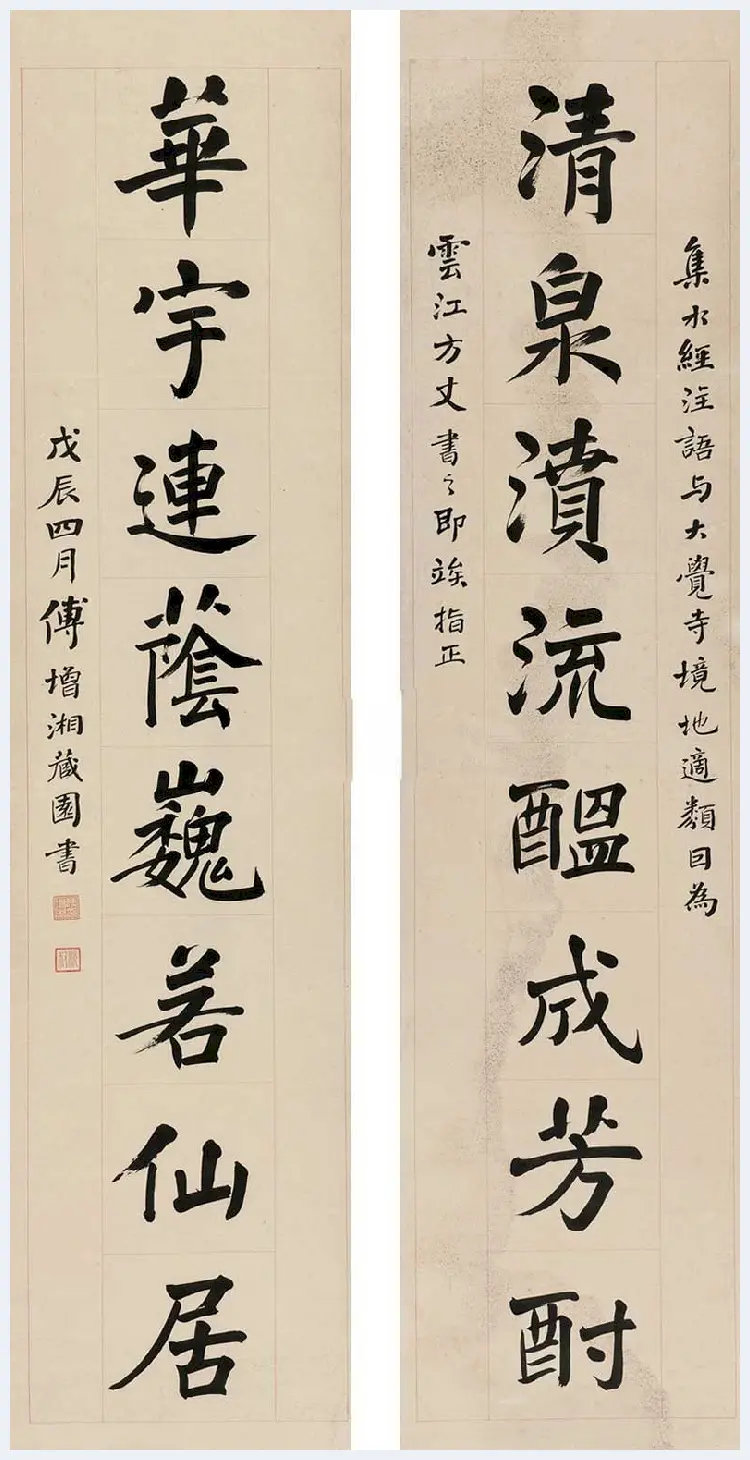 集水經注語与大覺寺境地適類囙為
清泉濆流醞成芳酎
雲江方丈書之即竢指正
華宇連蔭巍若仙居
戊辰四月傅增湘藏園書